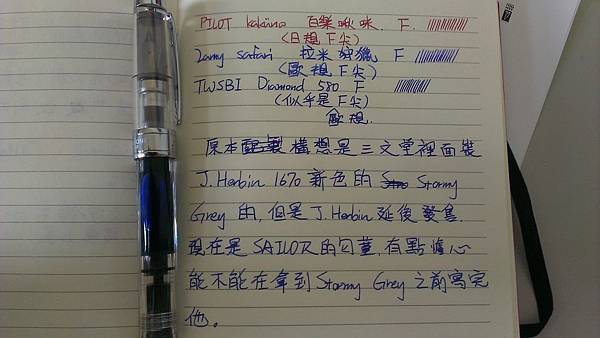 PILOT kaküno 百樂啾咪. F.
(日規F尖)
Lamy safari 拉米狩獵 F
(歐規F尖)
TWSBI Diamond 580 F
(似乎是F尖)
歐規.
原本構想是三文堂裡面裝
J.Herbin 1670 新色的 Stormy
Grey 的, 但是J.Herbin延後發售.
現在是SAILOR的勾蓳, 有點擔心
能不能在拿到Stormy Grey之前寫完
他。